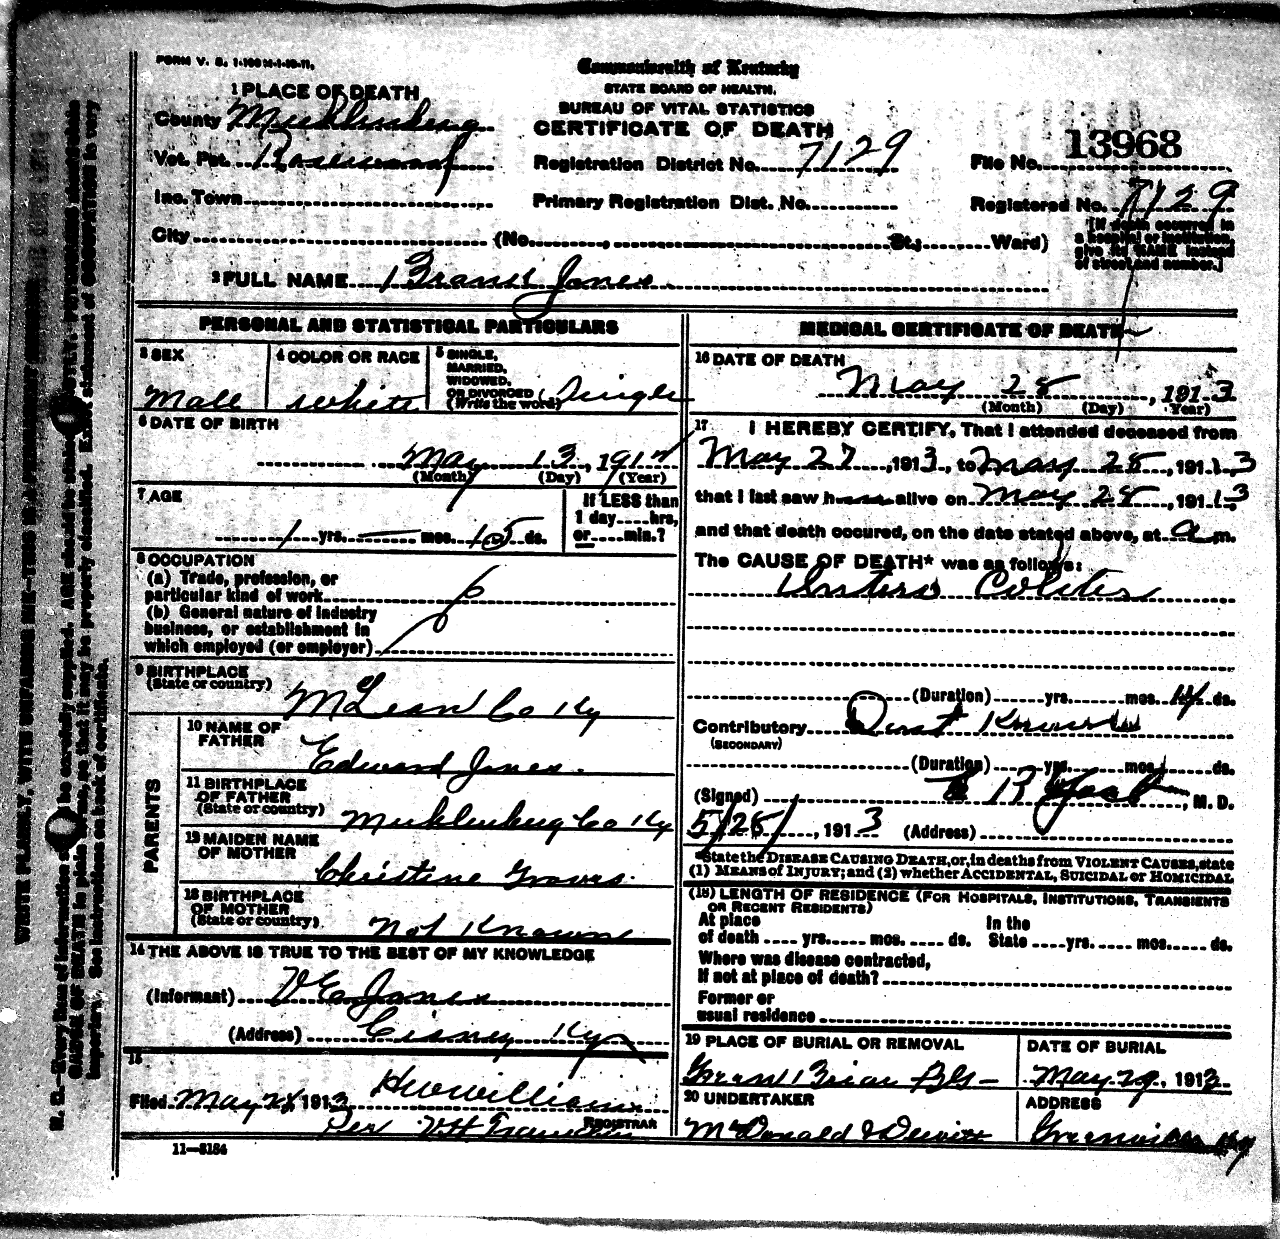 FORM V. S. 1-100M-1-10-11.
Commonwealth of Kentucky
STATE BOARD OF HEALTH.
BUREAU OF VITAL STATISTICS
CERTIFICATE OF DEATH
1 PLACE OF DEATH
County Muhlenberg
Vot. Pct.
Registration District No. 7129
File No. 13968
Inc. Town
Primary Registration Dist. No.
Registered No. 7129
City (No. , St.; Ward)
[If death occurred in
a hospital or institution,
give its NAME instead
of street and number.]
2 FULL NAME Jones
PERSONAL AND STATISTICAL PARTICULARS
3 SEX
Male
4 COLOR OR RACE
white
5 SINGLE,
MARRIED,
WIDOWED,
OR DIVORCED
(Write the word)
Single
6 DATE OF BIRTH
May 13, 191
(Month) (Day) (Year)
7 AGE
1 yrs. — mos. 15 ds.
If LESS than
1 day hrs,
or min.?
8 OCCUPATION
(a) Trade, profession, or
particular kind of work
(b) General nature of industry
business, or establishment in
which employed (or employer)
9 BIRTHPLACE
(State or country)
McLean Co Ky
PARENTS
10 NAME OF
FATHER
Edward Jones.
11 BIRTHPLACE
OF FATHER
(State or country)
Muhlenburg Co Ky
12 MAIDEN NAME
OF MOTHER
Christine Graves.
13 BIRTHPLACE
OF MOTHER
(State or country)
Not Known
14 THE ABOVE IS TRUE TO THE BEST OF MY KNOWLEDGE
(Informant) V E Jones
(Address) Cisney Ky
15
Filed May 28, 1913 H W Williams
REGISTRAR
Per V H
11—5184
MEDICAL CERTIFICATE OF DEATH
16 DATE OF DEATH
May 28, 1913
(Month) (Day) (Year)
17 I HEREBY CERTIFY, That I attended deceased from
May 27, 1913, to May 28, 191 13
that I last saw h alive on May 28, 191 13
and that death occured, on the date stated above, at a m.
The CAUSE OF DEATH* was as follows:
Entero Colitis
(Duration) yrs. mos. 14 ds.
Contributory Dont Know
(SECONDARY)
(Duration) yrs. mos. ds.
(Signed) R Yost, M. D.
5/28/, 1913 (Address)
*State the DISEASE CAUSING DEATH, or, in deaths from VIOLENT CAUSES, state
(1) MEANS OF INJURY; and (2) whether ACCIDENTAL, SUICIDAL or HOMICIDAL
(18) LENGTH OF RESIDENCE (FOR HOSPITALS, INSTITUTIONS, TRANSIENTS
OR RECENT RESIDENTS)
At place
of death yrs. mos. ds.
In the
State yrs. mos. ds.
Where was disease contracted,
If not at place of death?
Former or
usual residence
19 PLACE OF BURIAL OR REMOVAL
Green Briar
DATE OF BURIAL
May 29, 1913
20 UNDERTAKER
McDonald & Dewitt
ADDRESS
Greenville Ky